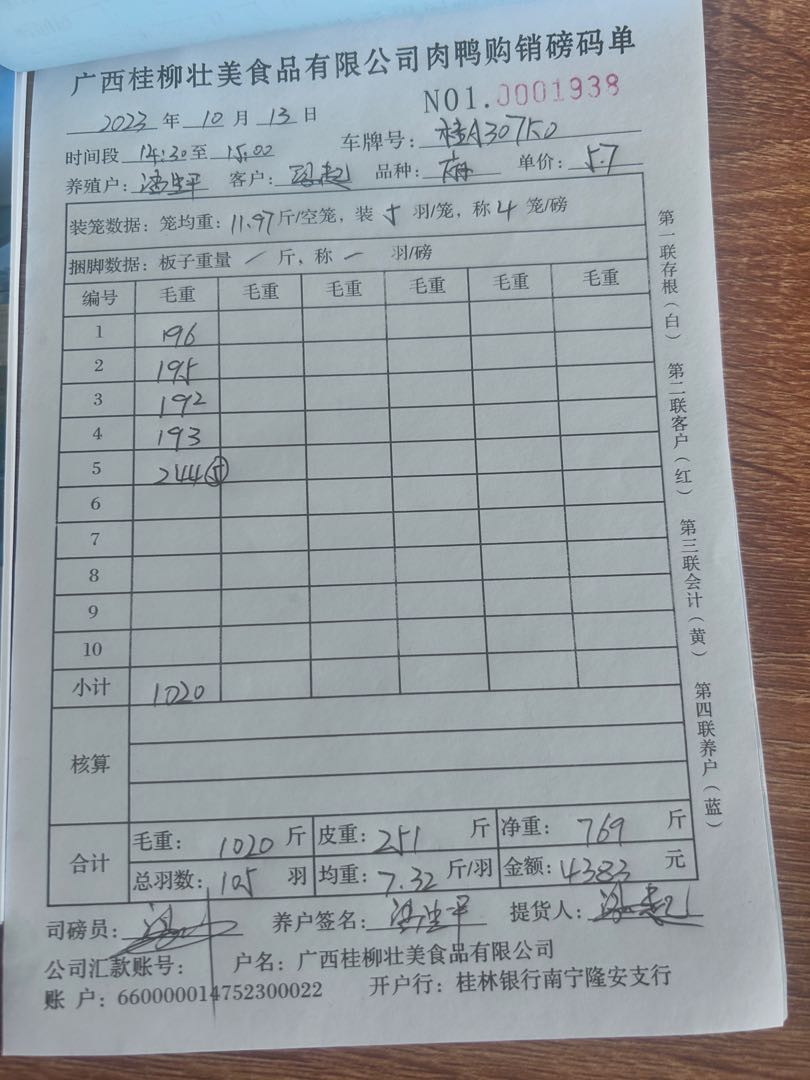 广西桂柳壮美食品有限公司肉鸭购销磅码单
NO1.0001938
2023 年 10 月 13 日
时间段 14:30 至 15:00 车牌号: 桂A307K0
养殖户: 客户: 品种: 单价: 5.7
装笼数据: 笼均重: 11.97 斤/空笼, 装 5 羽/笼, 称 4 笼/磅
捆脚数据: 板子重量 / 斤, 称 一 羽/磅
编号 毛重 毛重 毛重 毛重 毛重 毛重
1 196
2 195
3 192
4 193
5 244 ⑤
6
7
8
9
10
小计 1020
核算
合计 毛重: 1020 斤 皮重: 251 斤 净重: 769 斤
总羽数: 105 羽 均重: 7.32 斤/羽 金额: 4383 元
司磅员: 养户签名: 提货人:
公司汇款账号: 户名: 广西桂柳壮美食品有限公司
账 户: 660000014752300022 开户行: 桂林银行南宁隆安支行
第一联存根(白) 第二联客户(红) 第三联会计(黄) 第四联养户(蓝)